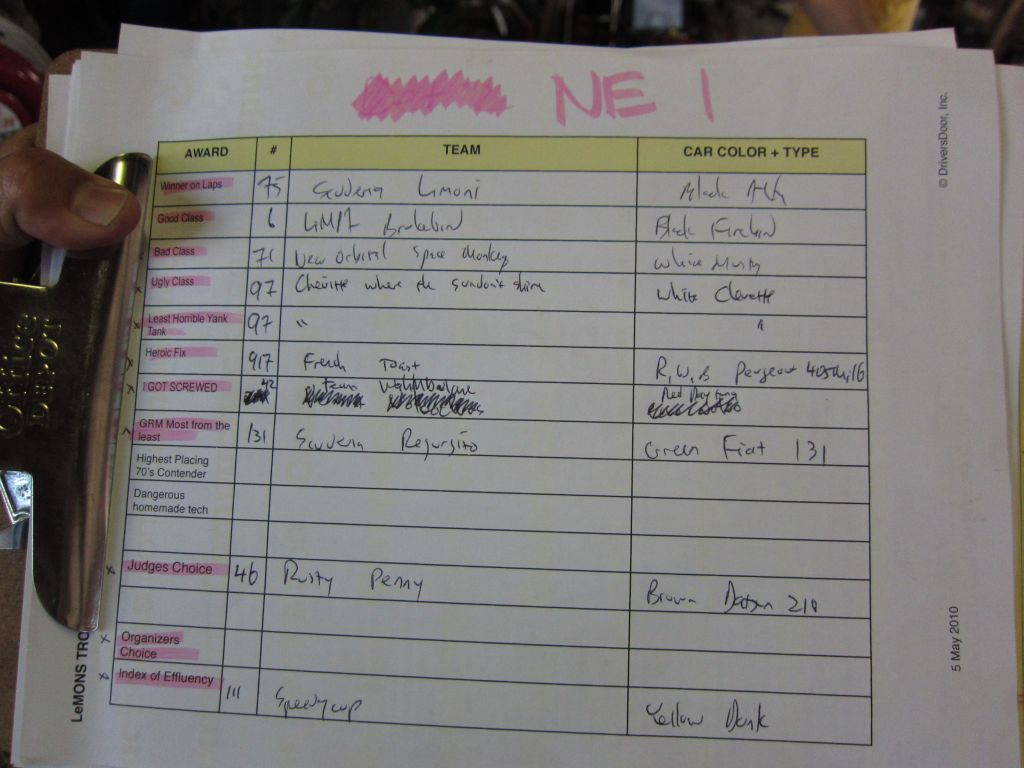 NE 1
© DriversDoor, Inc.
AWARD # TEAM CAR COLOR + TYPE
Winner on Laps 75 Scuderia Limoni Black Alfa
Good Class 6 Black Firebird
Bad Class 71 New Orbital Space Monkey White
Ugly Class 97 Chevette where the sun don't shine White Chevette
Least Horrible Yank Tank 97 " "
Heroic Fix 917 French Toast R, W, B Peugeot 405 Mi16
I GOT SCREWED 42 Team Red Daytona
GRM Most from the least 131 Scuderia Regurgito Green Fiat 131
Highest Placing
70's Contender
Dangerous
homemade tech
Judges Choice 46 Rusty Penny Brown Datsun 210
Organizers
Choice
Index of Effluency 111 Speedycop Yellow
LeMONS TRO
5 May 2010
Office
DEPOT